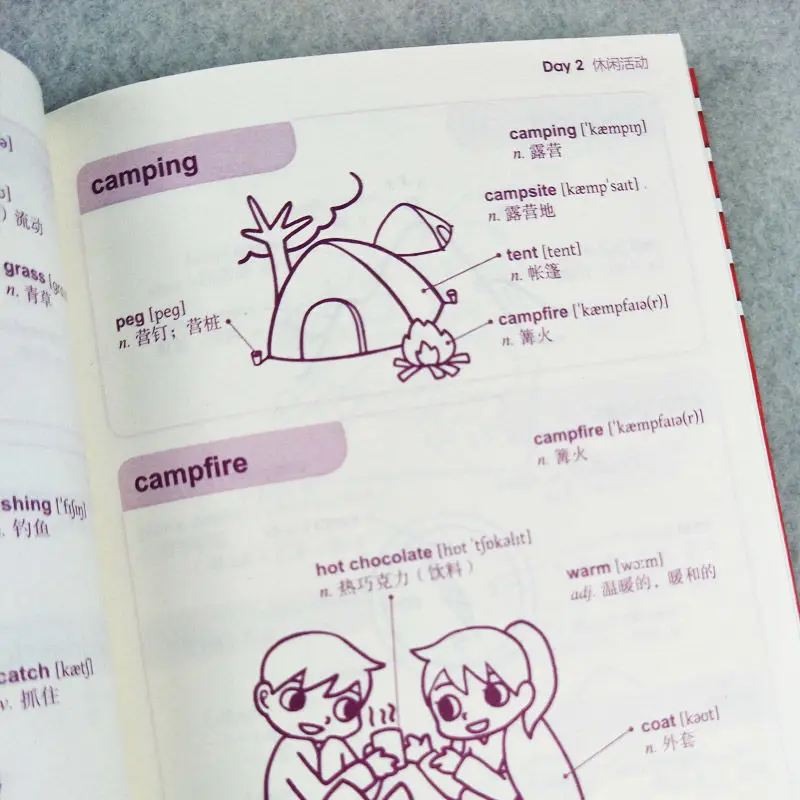 流动
grass
n. 青草
shing ['fɪʃɪŋ]
钓鱼
catch [kætʃ]
v. 抓住
Day 2 休闲活动
camping
camping ['kæmpɪŋ]
n. 露营
campsite [kæmp'saɪt]
n. 露营地
tent [tent]
n. 帐篷
peg [peg]
n. 营钉；营桩
campfire ['kæmpfaɪə(r)]
n. 篝火
campfire
campfire ['kæmpfaɪə(r)]
n. 篝火
hot chocolate [hɒt 'tʃɒkəlɪt]
n. 热巧克力（饮料）
warm [wɔːm]
adj. 温暖的，暖和的
coat [kəʊt]
n. 外套